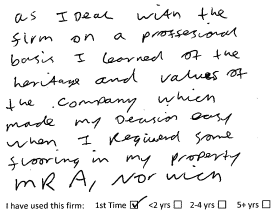 as I Deal with the
firm on a proffesional
basis I learned of the
heritage and values of
the Company which
made my Decision easy
when I Required some
flooring in my property
MR A, Norwich
I have used this firm: 1st Time ☑ <2 yrs ☐ 2-4 yrs ☐ 5+ yrs ☐